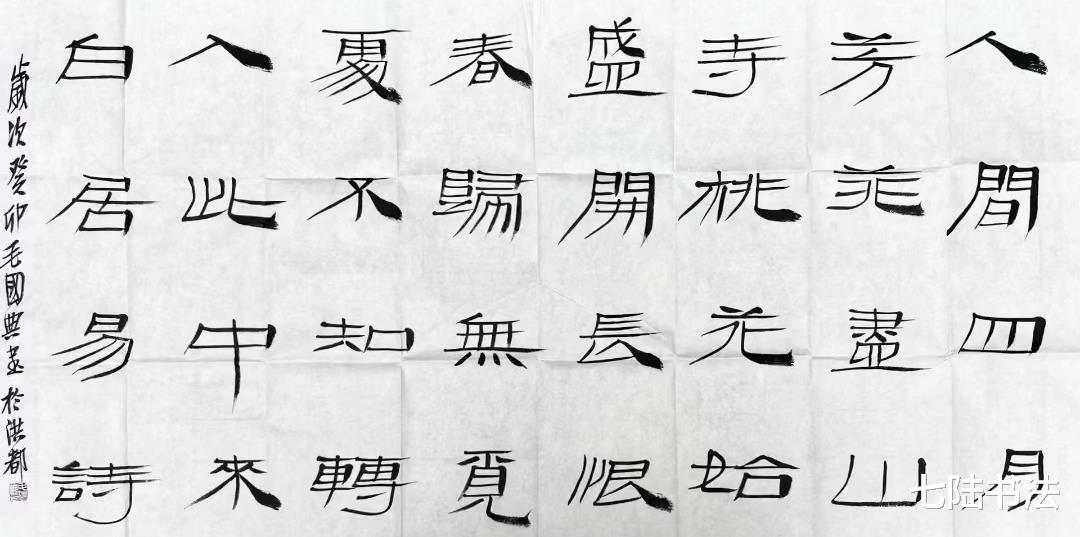 人間四月
芳菲盡山
寺桃花始
盛開長恨
春歸無覓
處不知轉
入此中來
白居易詩
歲次癸卯毛國典書於洪都
七陆书法